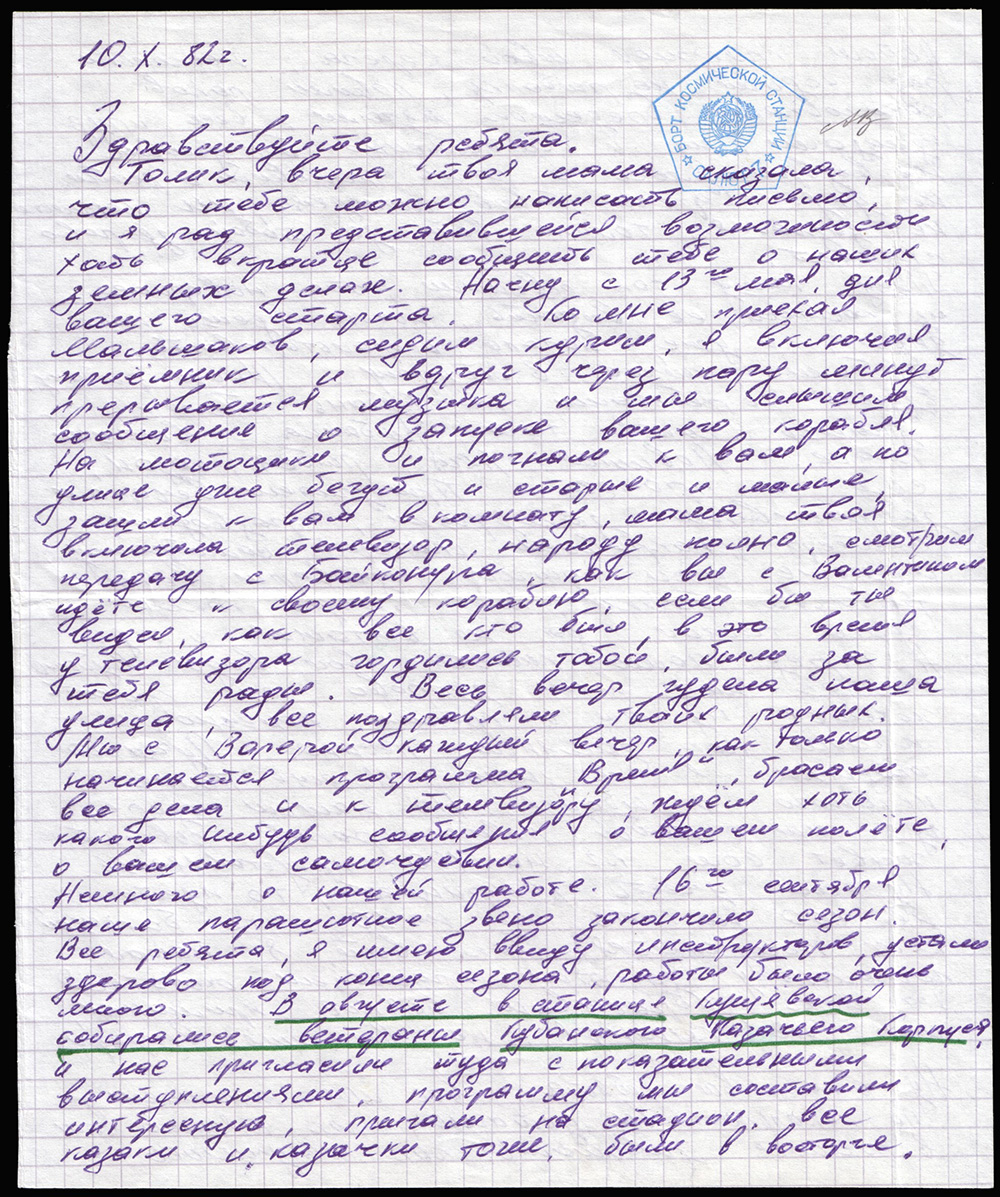 10. X. 82г.
БОРТ КОСМИЧЕСКОЙ СТАНЦИИ
САЛЮТ-7
Здравствуйте ребята.
Толик, вчера твоя мама сказала,
что тебе можно написать письмо,
и я рад представившейся возможности
хоть вкратце сообщить тебе о наших
земных делах. Начну с 13го мая, дня
вашего старта. Ко мне приехал
Мальшаков, сидим курим, я включил
приёмник и вдруг через пару минут
прерывается музыка и мы слышим
сообщение о запуске вашего корабля.
На мотоцикл и погнали к вам, а по
улице уже бегут и старые и малые,
зашли к вам в комнату, мама твоя
включила телевизор, народу полно, смотрим
передачу с Байконура, как вы с Валентином
идёте к своему кораблю, если бы ты
видел, как все кто был в это время
у телевизора гордились тобой, были за
тебя рады. Весь вечер гудела наша
улица, все поздравляли твоих родных.
Мы с Валерой каждый вечер, как только
начинается программа "Время", бросаем
все дела и к телевизору, ждём хоть
какого нибудь сообщения о вашем полёте,
о вашем самочувствии.
Немного о нашей работе. 16го сентября
наше парашютное звено закончило сезон.
Все ребята, я имею ввиду инструкторов, устали
здорово под конец сезона, работы было очень
много. В августе в станице Кущёвской
собирались ветераны Кубанского Казачьего Корпуса,
и нас пригласили туда с показательными
выступлениями, программу мы составили
интересную, прыгали на стадион, все
казаки и казачки тоже, были в восторге.